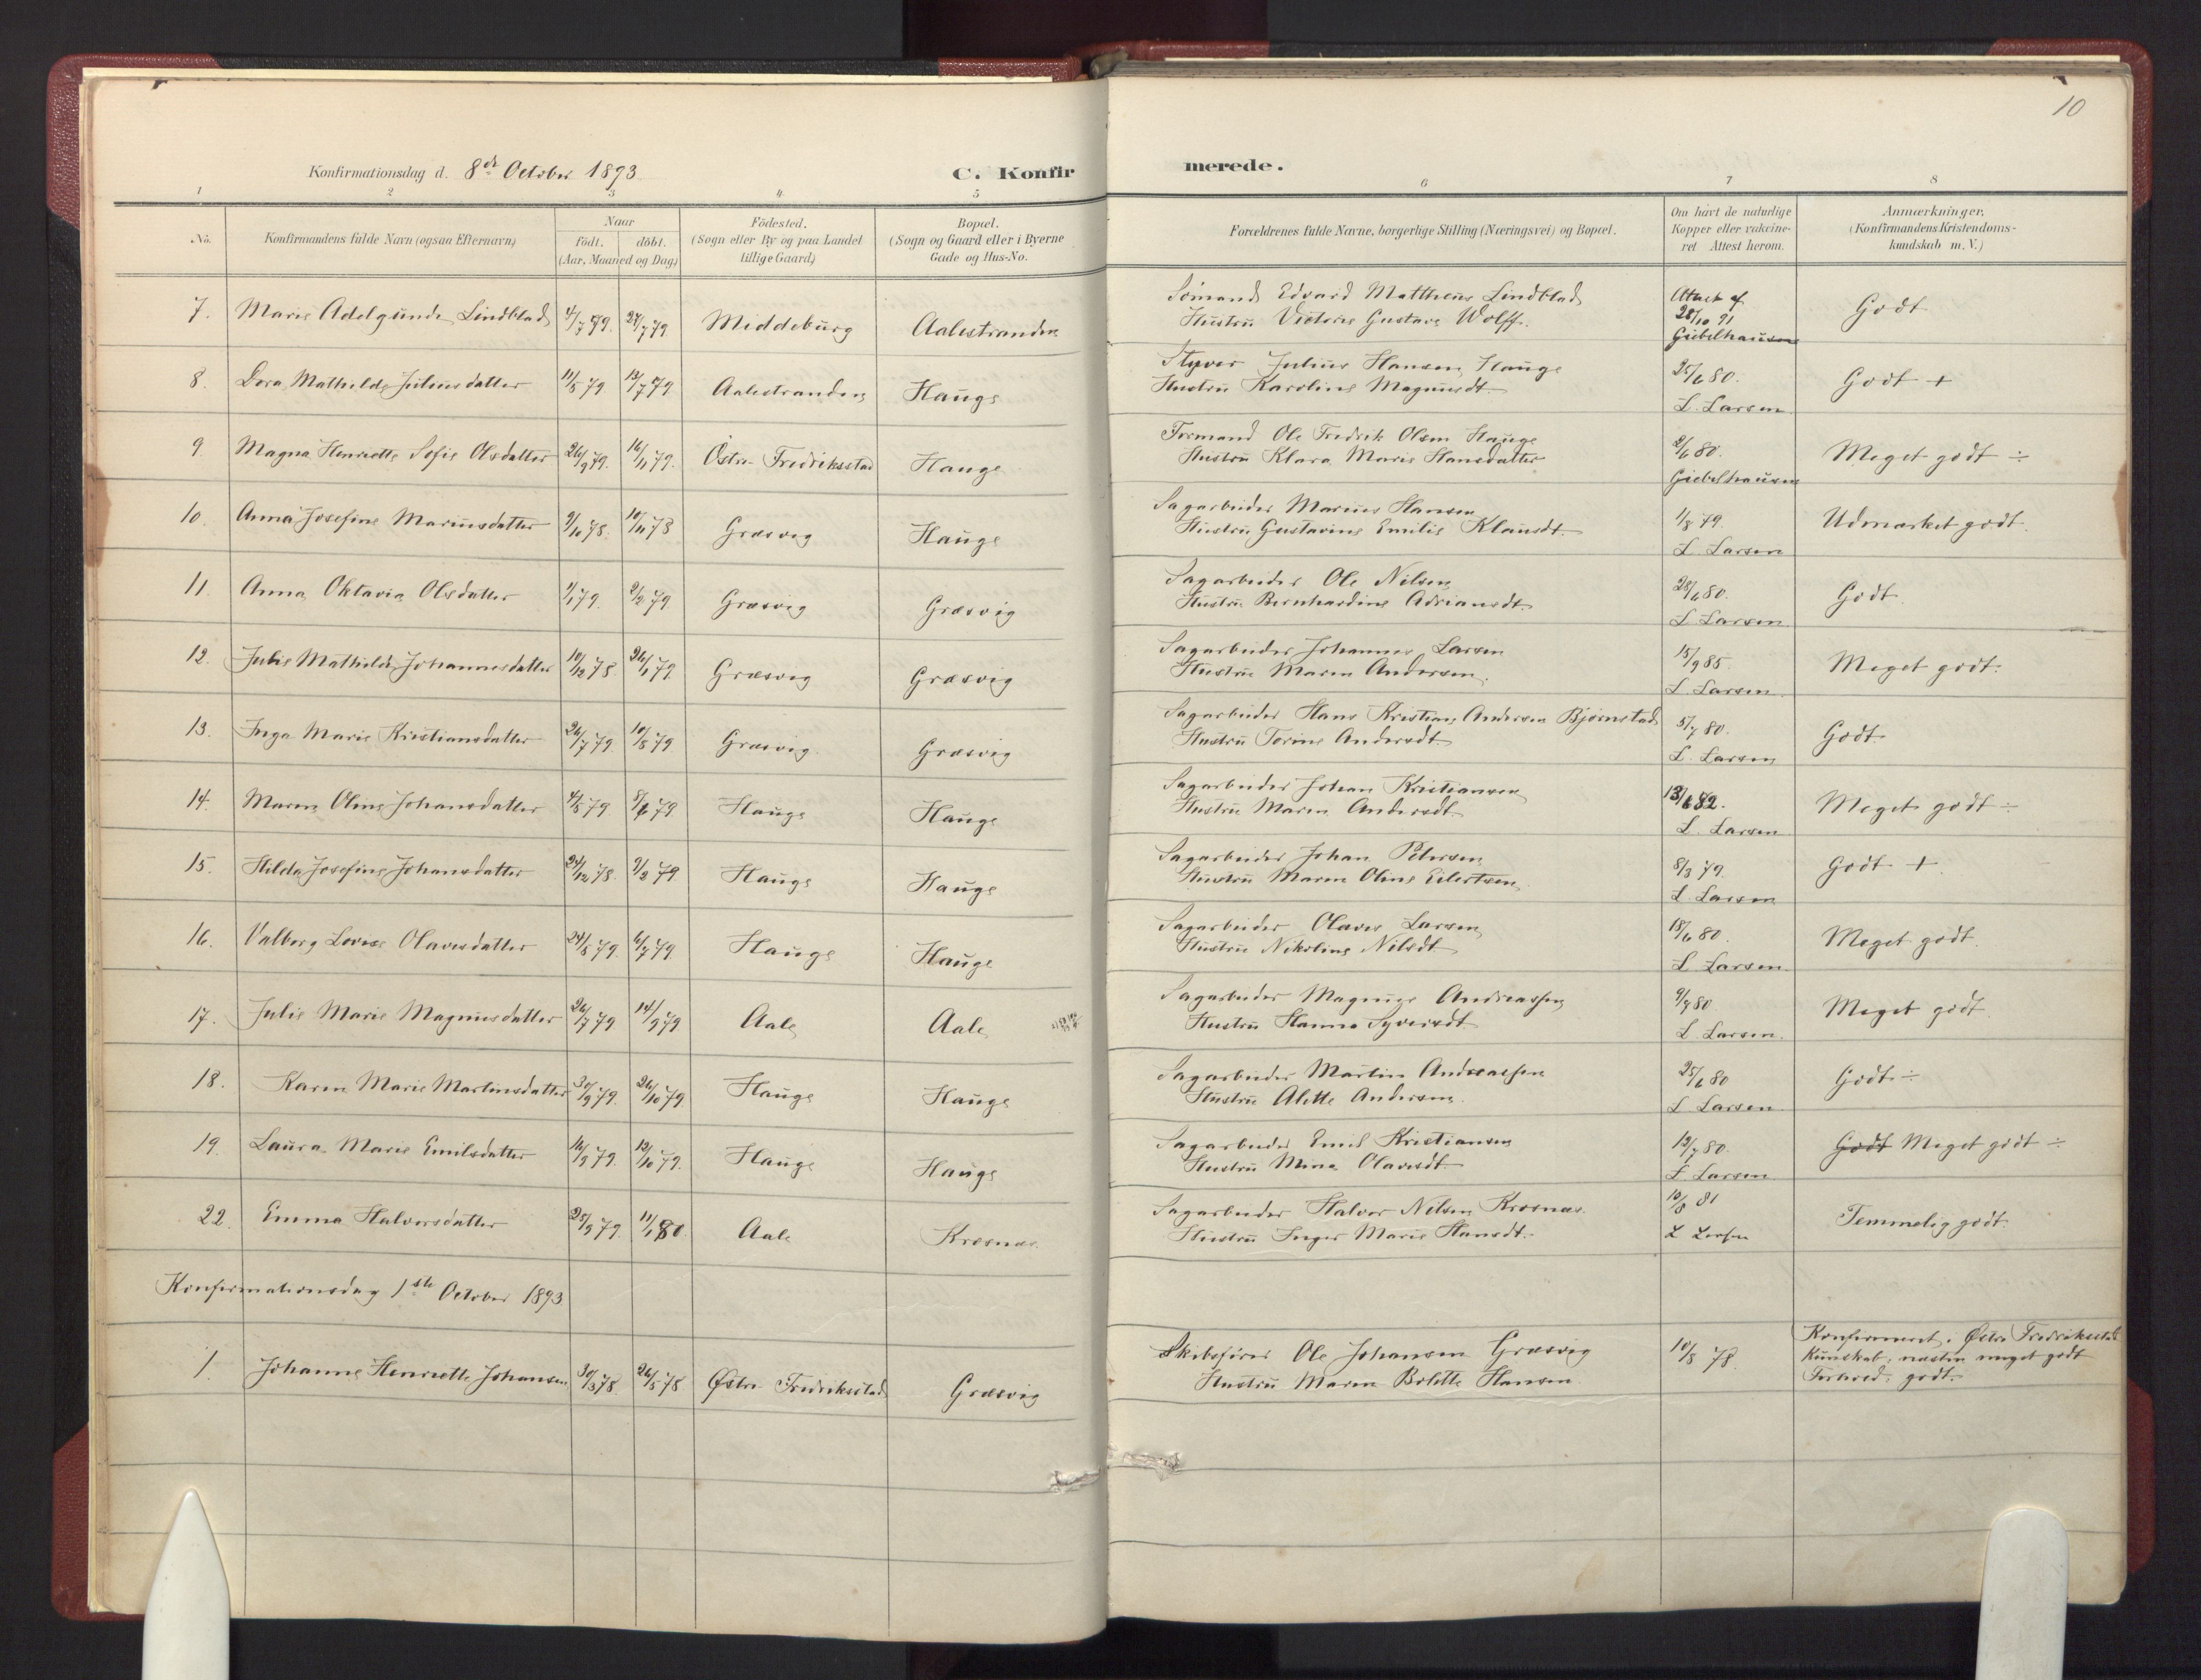 10
Konfirmationsdag d. 8de October 1893
C. Konfirmerede.
1 2 3 4 5 6 7 8
No.
Konfirmandens fulde Navn (ogsaa Efternavn)
Naar
födt. döbt.
(Aar, Maaned og Dag)
Födested.
(Sogn eller By og paa Landet
tillige Gaard)
Bopæl.
(Sogn og Gaard eller i Byerne
Gade og Hus-No.
Forældrenes fulde Navne, borgerlige Stilling (Næringsvei) og Bopæl.
Om havt de naturlige
Kopper eller vakcine-
ret Attest herom.
Anmærkninger.
(Konfirmandens Kristendoms-
kundskab m. V.)
7. Marie Adelgunde Lindblad 4/7 79. 27/7 79 Middeburg Aalestranden
Sömand Edvard Mattheus Lindblad
Hustru Victoria Gustava Wolff.
Attest af
28/10 91
Giebelhausen
Godt
8. Dora Mathilde Juliusdatter 11/5 79 13/7 79 Aalestranden Hauge
Styver Julius Hansen Hauge
Hustru Karoline Magnusdt.
25/6 80.
L. Larsen
Godt +
9. Magna Henriette Sofie Olsdatter 26/9 79. 16/11 79. Östre Fredriksstad Hauge
Formand Ole Fredrik Olsen Hauge
Hustru Klara Marie Hansdatter
2/6 80.
Giebelhausen
Meget godt ÷
10. Anna Josefine Mariusdatter 9/10 78. 10/11 78 Græsvig Hauge
Sagarbeider Marius Hansen
Hustru Gustavine Emilie Klausdt.
1/8 79.
L. Larsen
Udmærket godt.
11. Anna Oktavia Olsdatter 1/1 79. 2/2 79 Græsvig Græsvig
Sagarbeider Ole Nilsen
Hustru Bernhardine Adriansdt.
28/6 80.
L. Larsen
Godt.
12. Julie Mathilde Johannesdatter 10/12 78. 26/1 79. Græsvig Græsvig
Sagarbeider Johannes Larsen
Hustru Maren Andersen.
15/9 85.
L. Larsen.
Meget godt.
13. Inga Marie Kristiansdatter 26/7 79. 10/8 79 Græsvig Græsvig
Sagarbeider Hans Kristian Andersen Bjørnstad
Hustru Torine Andersdt.
5/7 80.
L. Larsen
Godt
14. Maren Oline Johansdatter 4/5 79 8/6 79. Hauge Hauge
Sagarbeider Johan Kristiansen
Hustru Maren Andersdt.
13/6 82.
L. Larsen
Meget godt ÷
15. Hilda Josefine Johansdatter 24/12 78. 9/2 79 Hauge Hauge
Sagarbeider Johan Petersen
Hustru Maren Oline Eilertsen.
8/3 79.
L. Larsen
Godt +
16. Valborg Lovise Olavesdatter 24/5 79. 6/7 79 Hauge Hauge
Sagarbeider Olaves Larsen
Hustru Nikoline Nilsdt
18/6 80.
L. Larsen
Meget godt.
17. Julie Marie Magnusdatter 26/7 79 14/9 79 Aale Aale
Sagarbeider Magnus Andreassen
Hustru Hanna Syversdt.
9/7 80
L. Larsen.
Meget godt
18. Karen Marie Martinsdatter 30/9 79. 26/10 79. Hauge Hauge
Sagarbeider Martin Andreassen
Hustru Alette Andersen.
25/6 80
L. Larsen
Godt ÷
19. Laura Marie Emilsdatter 16/9 79. 12/10 79. Hauge Hauge
Sagarbeider Emil Kristiansen
Hustru Mina Olavesdt
12/7 80.
L. Larsen
Godt Meget godt ÷
22. Emma Halvorsdatter 25/9 79. 11/1 80. Aale Krosnæs.
Sagarbeider Halvor Nilsen Krosnæs.
Hustru Inger Marie Hansdt.
10/8 81
L Larsen
Temmelig godt.
Konfirmationsdag 1ste October 1893
1. Johanne Henriette Johansen 30/3 78. 26/5 78 Østre Fredriksstad Græsvig
Skibsfører Ole Johansen Græsvig
Hustru Maren Bolette Hansen.
10/8 78.
Konfirmeret i Østre Fredriksstad
Kunskab: næsten meget godt
Forhold: godt.